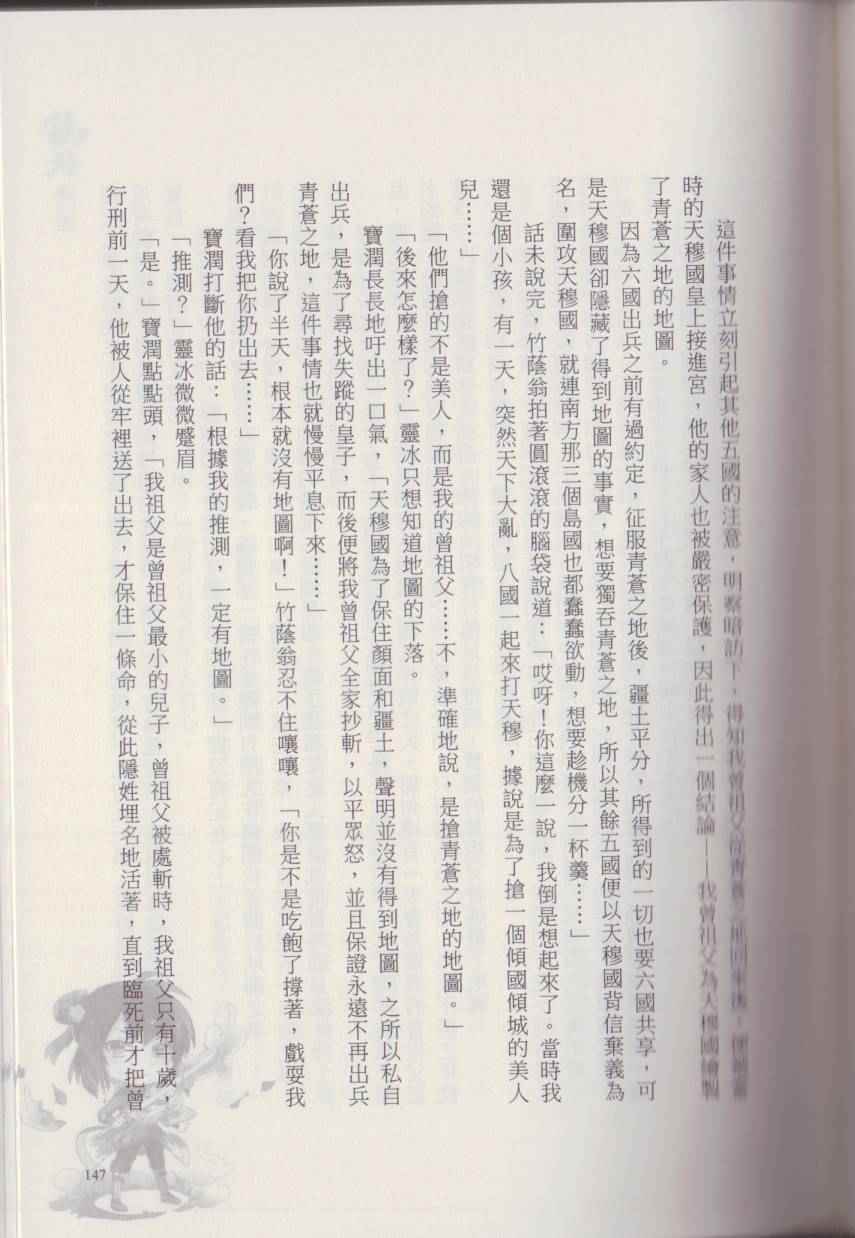 這件事情立刻引起其他五國的注意，明察暗訪下，得知我曾祖父從青蒼之地回來後，便被當
時的天穆國皇上接進宮，他的家人也被嚴密保護，因此得出一個結論——我曾祖父為天穆國繪製
了青蒼之地的地圖。
因為六國出兵之前有過約定，征服青蒼之地後，疆土平分，所得到的一切也要六國共享，可
是天穆國卻隱藏了得到地圖的事實，想要獨吞青蒼之地，所以其餘五國便以天穆國背信棄義為
名，圍攻天穆國，就連南方那三個島國也都蠢蠢欲動，想要趁機分一杯羹……」
話未說完，竹蔭翁拍著圓滾滾的腦袋說道：「哎呀！你這麼一說，我倒是想起來了。當時我
還是個小孩，有一天，突然天下大亂，八國一起來打天穆，據說是為了搶一個傾國傾城的美人
兒……」
「他們搶的不是美人，而是我的曾祖父……不，準確地說，是搶青蒼之地的地圖。」
「後來怎麼樣了？」靈冰只想知道地圖的下落。
寶潤長長地吁出一口氣，「天穆國為了保住顏面和疆土，聲明並沒有得到地圖，之所以私自
出兵，是為了尋找失蹤的皇子，而後便將我曾祖父全家抄斬，以平眾怒，並且保證永遠不再出兵
青蒼之地，這件事情也就慢慢平息下來……」
「你說了半天，根本就沒有地圖啊！」竹蔭翁忍不住嚷嚷，「你是不是吃飽了撐著，戲耍我
們？看我把你扔出去……」
寶潤打斷他的話：「根據我的推測，一定有地圖。」
「推測？」靈冰微微蹙眉。
「是。」寶潤點點頭，「我祖父是曾祖父最小的兒子，曾祖父被處斬時，我祖父只有十歲，
行刑前一天，他被人從牢裡送了出去，才保住一條命，從此隱姓埋名地活著，直到臨死前才把曾
147